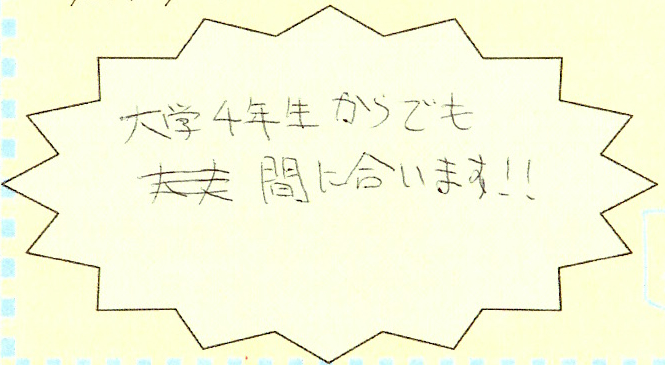 大学4年生からでも
間に合います!!